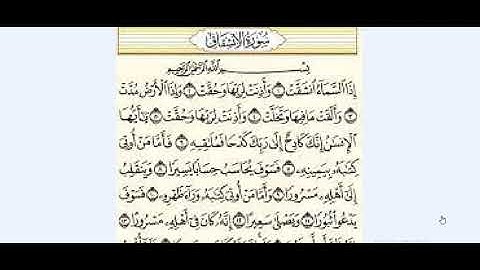 سُورَةُ الِانشِقَاقِ
بِسْمِ اللَّهِ الرَّحْمَٰنِ الرَّحِيمِ
إِذَا السَّمَاءُ انشَقَّتْ ١ وَأَذِنَتْ لِرَبِّهَا وَحُقَّتْ ٢ وَإِذَا الْأَرْضُ مُدَّتْ
٣ وَأَلْقَتْ مَا فِيهَا وَتَخَلَّتْ ٤ وَأَذِنَتْ لِرَبِّهَا وَحُقَّتْ ٥ يَا أَيُّهَا
الْإِنسَانُ إِنَّكَ كَادِحٌ إِلَىٰ رَبِّكَ كَدْحًا فَمُلَاقِيهِ ٦ فَأَمَّا مَنْ أُوتِيَ
كِتَابَهُ بِيَمِينِهِ ٧ فَسَوْفَ يُحَاسَبُ حِسَابًا يَسِيرًا ٨ وَيَنقَلِبُ
إِلَىٰ أَهْلِهِ مَسْرُورًا ٩ وَأَمَّا مَنْ أُوتِيَ كِتَابَهُ وَرَاءَ ظَهْرِهِ ١٠ فَسَوْفَ
يَدْعُو ثُبُورًا ١١ وَيَصْلَىٰ سَعِيرًا ١٢ إِنَّهُ كَانَ فِي أَهْلِهِ مَسْرُورًا ١٣